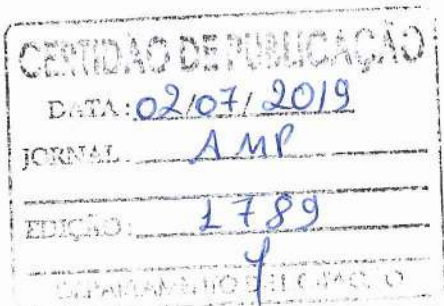 CERTIDÃO DE PUBLICAÇÃO
DATA: 02/07/2019
JORNAL: AMP
EDIÇÃO: 1789